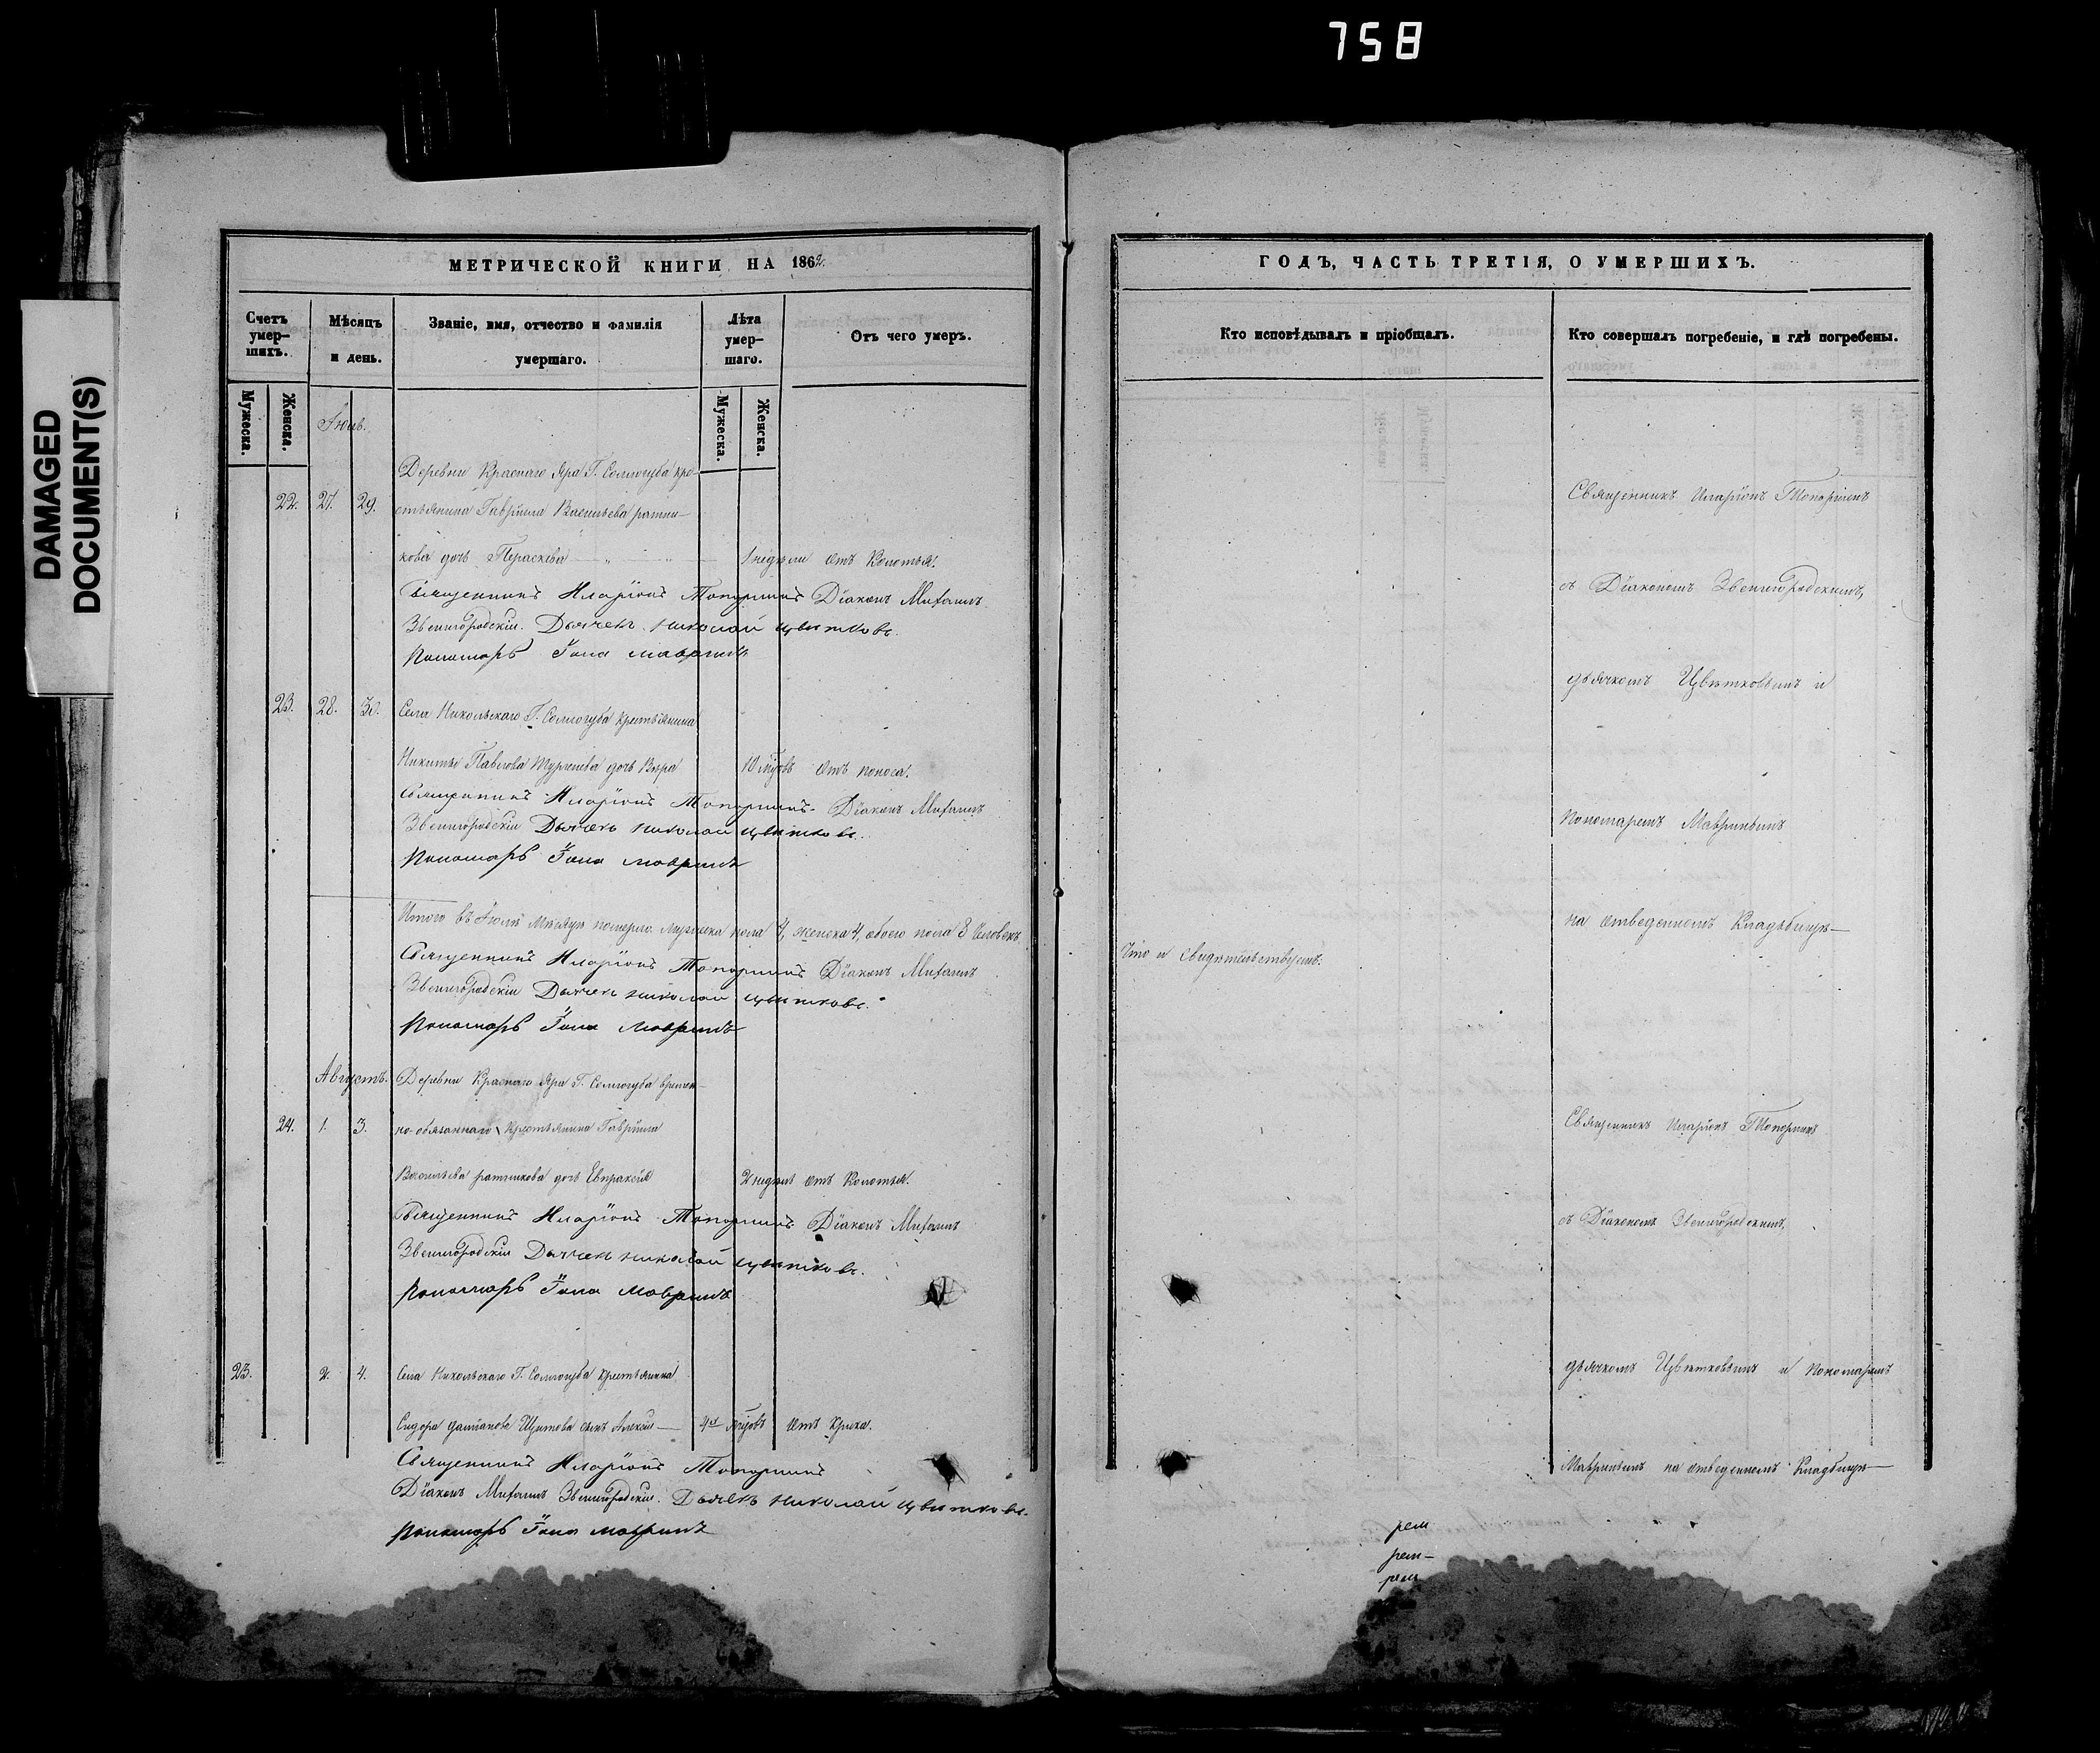 758
DAMAGED
DOCUMENT(S)
МЕТРИЧЕСКОЙ КНИГИ НА 1862.
Счетъ умер-шихъ.
Мѣсяцъ и день.
Званіе, имя, отчество и фамилія умершаго.
Лѣта умер-шаго.
Отъ чего умеръ.
Мужеска.
Женска.
Мужеска.
Женска.
Іюль.
Деревни Краснаго Яра Г. Соллогуба кре-
22. 27. 29. стьянина Гавріила Васильева ратни-
кова дочь Параскева 1 недѣли отъ Колотья.
Священникъ Иларіонъ Топорнинъ Діаконъ Михаилъ
Звенигородскій. Дьячекъ Николай Цвѣтковъ.
Пономарь Іона Мавринъ
23. 28. 30. Села Никольскаго Г. Соллогуба крестьянина
Никиты Павлова дочь Вѣра 10 мѣс. отъ поноса.
Священникъ Иларіонъ Топорнинъ Діаконъ Михаилъ
Звенигородскій Дьячекъ Николай Цвѣтковъ.
Пономарь Іона Мавринъ
Итого въ Іюлѣ Мѣсяцѣ померло мужеска пола 4, женска 4, обоего пола 8 человѣкъ
Священникъ Иларіонъ Топорнинъ Діаконъ Михаилъ
Звенигородскій Дьячекъ Николай Цвѣтковъ.
Пономарь Іона Мавринъ
Августъ. Деревни Краснаго Яра Г. Соллогуба времен-
24. 1. 3. но-обязаннаго крестьянина Гавріила
Васильева ратникова дочь Евпраксія 2 недѣль отъ Колотья.
Священникъ Иларіонъ Топорнинъ Діаконъ Михаилъ
Звенигородскій Дьячекъ Николай Цвѣтковъ.
Пономарь Іона Мавринъ
23. 2. 4. Села Никольскаго Г. Соллогуба крестьянина
Сидора сынъ Алексѣй отъ Крика.
Священникъ Иларіонъ Топорнинъ
Діаконъ Михаилъ Звенигородскій. Дьячекъ Николай Цвѣтковъ.
Пономарь Іона Мавринъ
ГОДЪ, ЧАСТЬ ТРЕТІЯ, О УМЕРШИХЪ.
Кто исповѣдывалъ и пріобщалъ.
Кто совершалъ погребеніе, и гдѣ погребены.
Священникъ Иларіонъ Топорнинъ
съ Діакономъ Звенигородскимъ,
дьячкомъ Цвѣтковымъ и
Пономаремъ Мавринымъ
на отведенномъ Кладбищѣ
Что и свидѣтельствуемъ.
Священникъ Иларіонъ Топорнинъ
съ Діакономъ Звенигородскимъ,
дьячкомъ Цвѣтковымъ и Пономаремъ
Мавринымъ на отведенномъ Кладбищѣ
рем
рем-
рем